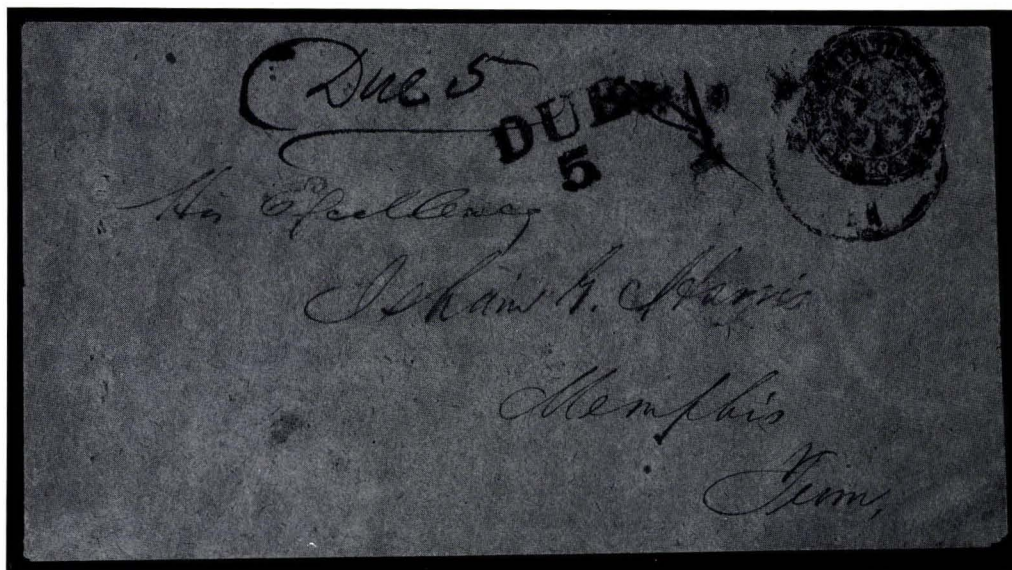 Due 5
DUE
5
His Excellency
Isham G. Harris
Memphis
Tenn,